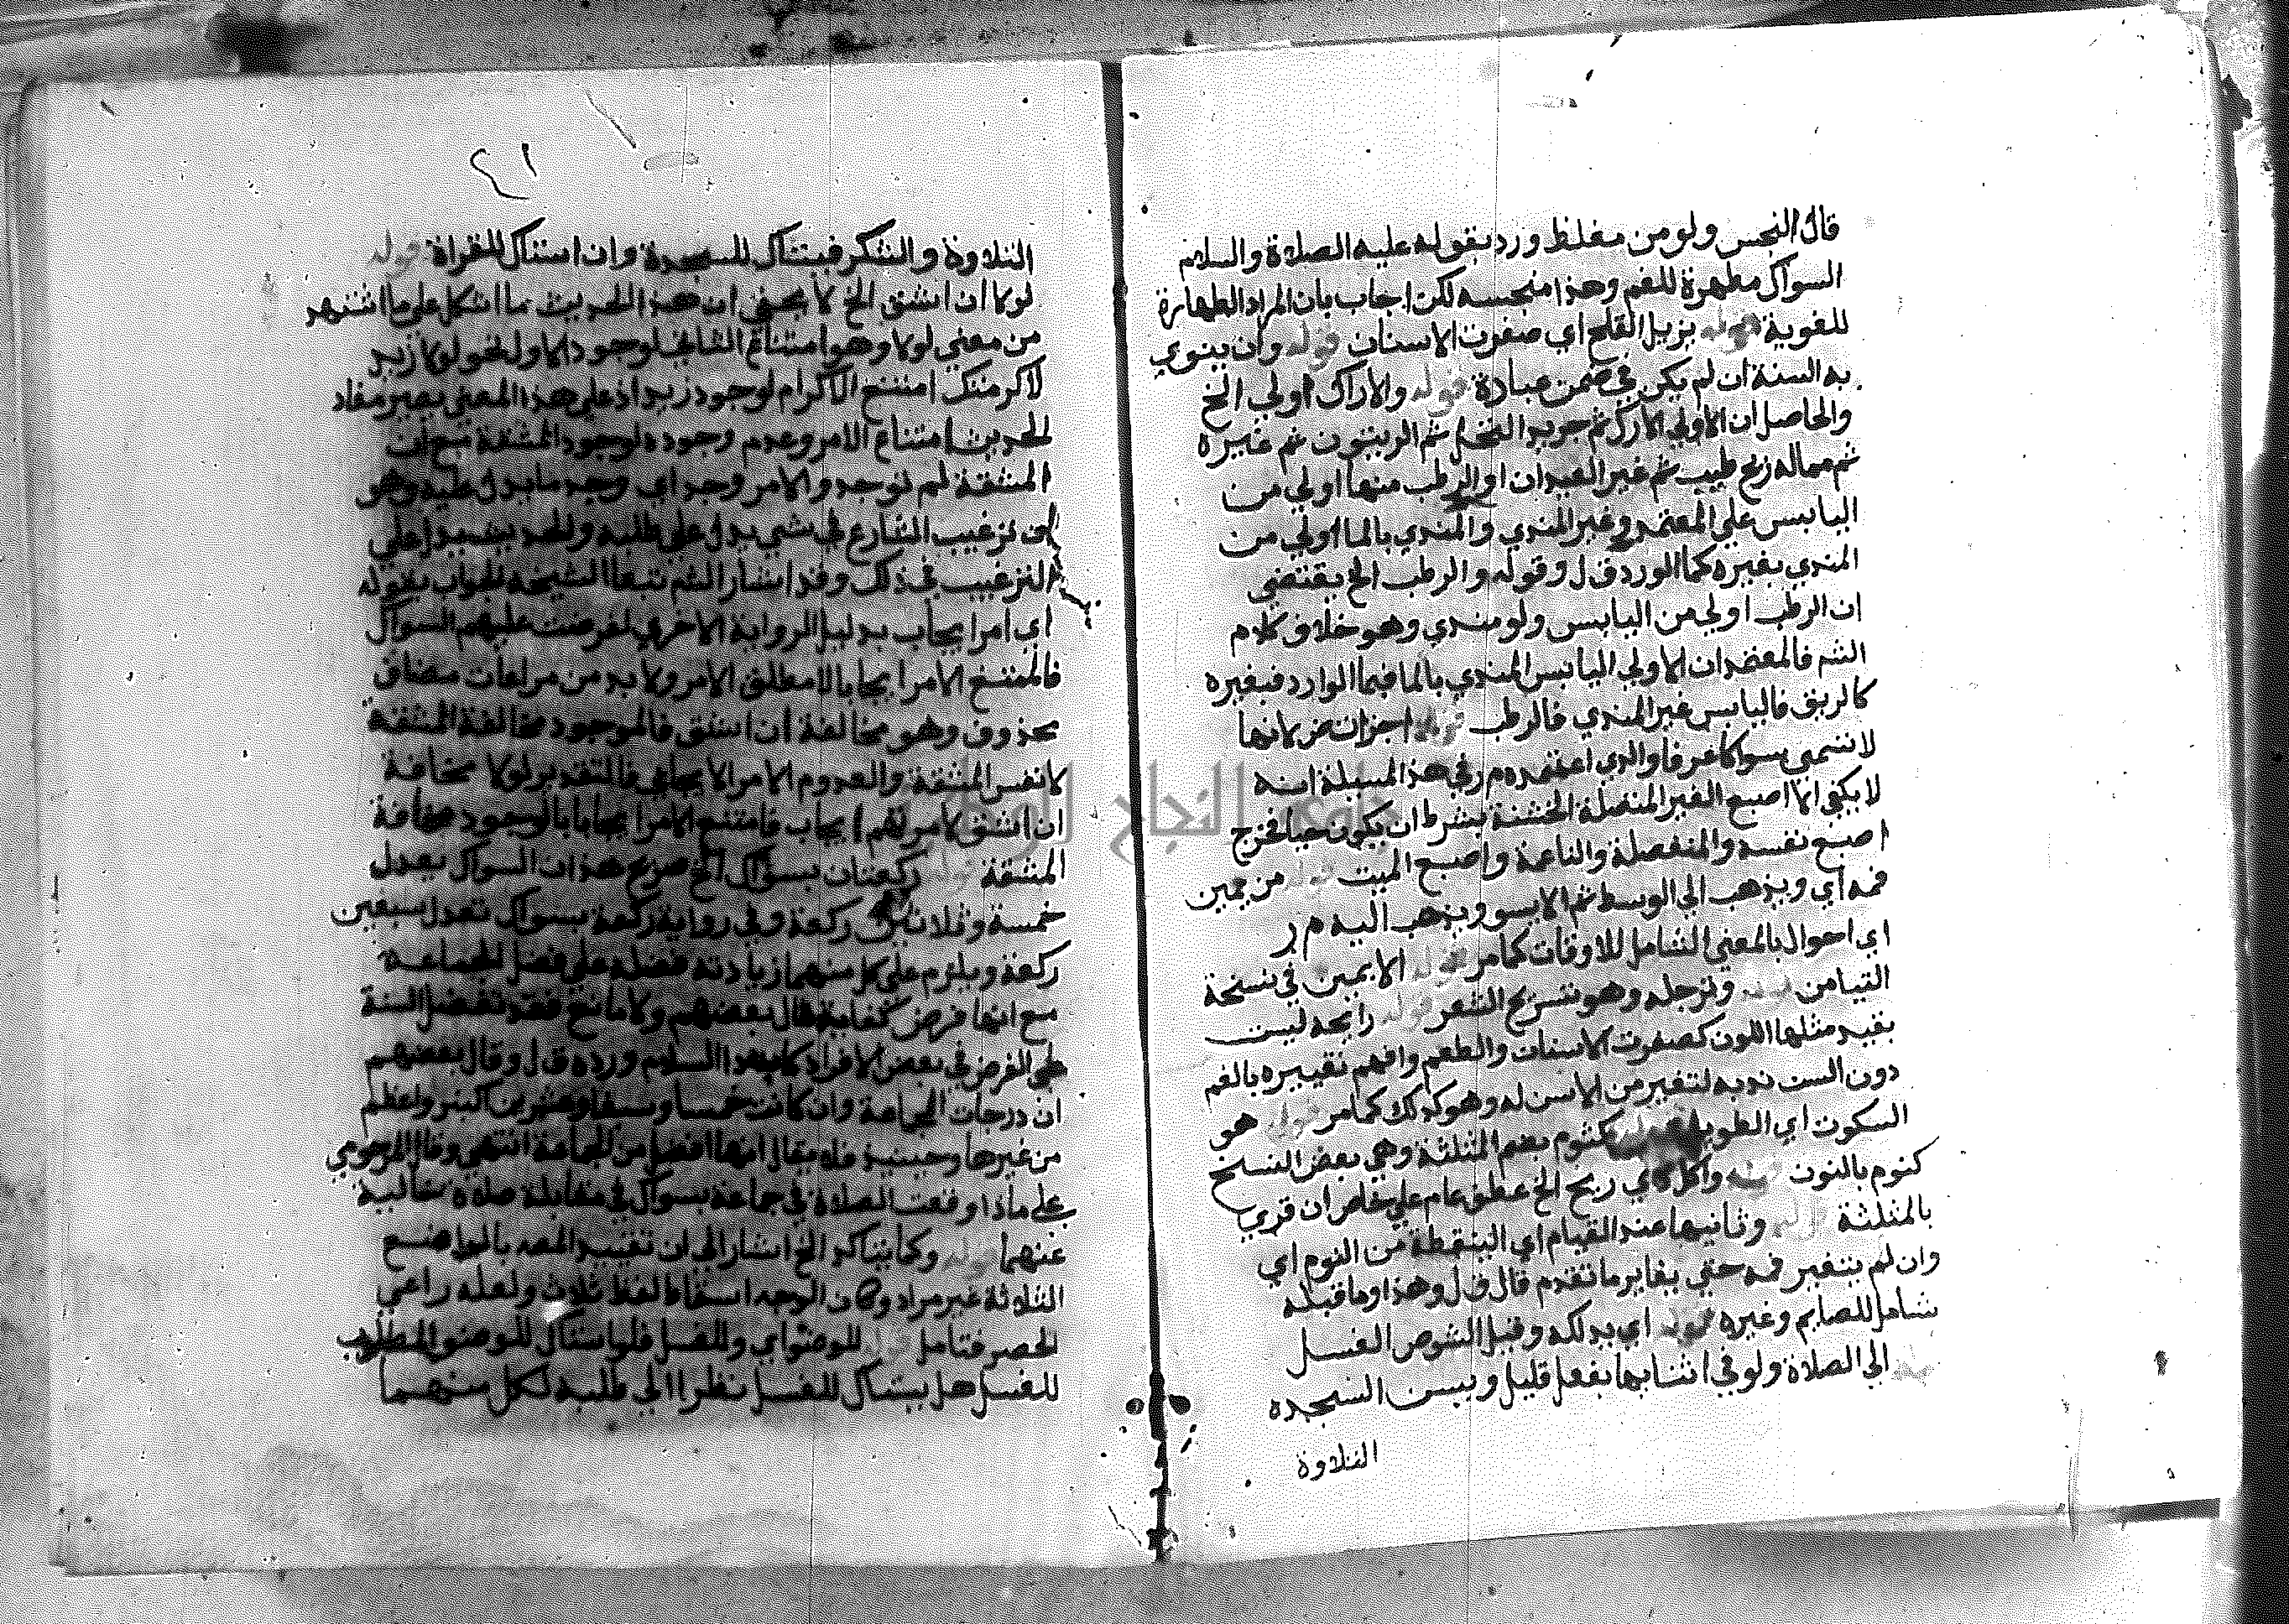 قال النجس ولو من مغلظ ورد بقوله عليه الصلاة والسلام
السواك مطهرة للفم وهذا منجسه لكن اجاب بان المراد الطهارة
للغوية قوله يزيل القلح اي صفرت الاسنان قوله وان ينوي
به السنة ان لم يكن في ضمن عبادة قوله والاراك اولي الخ
والحاصل ان الاولي الاراك ثم جريد النخل ثم الزيتون ثم غيره
ثم ماله ريح طيب ثم غير العيدان والرطب منها اولي من
اليابس علي المعتمد وغير المندي والمندي بالما اولي من
المندي بغيره كما الورد ق ل وقوله والرطب الخ يقتضي
ان الرطب اولي من اليابس ولو مندي وهو خلاف كلام
الشم فالمعتمد ان الاولي اليابس المندي بالما فبما الوارد فبغيره
كالريق فاليابس غير المندي فالرطب قوله اجزات لانها
لا تسمي سواكا عرفا والذي اعتمده م ر في هذا المسيلة انه
لا يكفي الا اصبع الغير المتصلة الخشنة بشرط ان يكون حيا فخرج
اصبع نفسه والمنفصلة والناعمة واصبع الميت قوله من يمين
فمه اي ويذهب الي الوسط ثم الايسر ويذهب اليه م ر
اي احوال بالمعني الشامل للاوقات كما مر قوله الايمين في نسخة
التيامن قوله وترجله وهو تسريح الشعر قوله رايحه ليست
بقيد مثلها اللون كصفرت الاسنان والطعم وافهم تقييره بالفم
دون السن ندبه لتغير من لا سن له وهو كذلك كما مر قوله هو
السكوت اي الطويل قوله كثوم بضم المثلثة وهي بعض النسخ
كنوم بالنون قوله واكل ذي ريح الخ عطف عام علي خاص ان قري
بالمثلثة قوله وثانيها عند القيام اي اليقظة من النوم اي
وان لم يتغير فمه حتي يغاير ما تقدم قال ق ل وهذا وما قبله
شامل للصايم وغيره قوله اي يدلكه وقيل الشوص الغسل
قوله الي الصلاة ولو في اثنايها بفعل قليل ويسن السجده
التلاوة
٢١
التلاوة والشكر فيستاك للسجدة وان استاك للقراة قوله
لولا ان اشق الخ لا يخفي ان هذا الحديث مما اشكل علي ما اشتهر
من معني لولا وهو امتناع الثاني لوجود الاول نحو لولا زيد
لاكرمتك امتنع الاكرام لوجود زيد اذ علي هذا المعني يصير مفاد
الحديث امتناع الامر وعدم وجوده لوجود المشقة مع ان
المشقة لم توجد والامر وجد اي وجد ما يدل عليه وهو
ترغيب الشارع في شي يدل علي طلبه والحديث يدل علي
الترغيب في ذلك وقد اشار الشم تبعا لشيخه للجواب بقوله
اي امر ايجاب بدليل الرواية الاخري لفرضت عليهم السواك
فالممتنع الامر ايجابا لا مطلق الامر ولا بد من مراعات مضاف
محذوف وهو مخالفة ان اشق فالموجود مخالفة المشقة
لا نفس المشقة والعدوم الامر الايجابي فالتقدير لولا مخافة
ان اشق لامرتهم ايجاب فامتنع الامر ايجابا بالوجود مخافة
المشقة قوله ركعتان بسواك الخ صريح هذا ان السواك يعدل
خمسة وثلاثين ركعة وفي رواية ركعة بسواك تعدل سبعين
ركعة ويلزم علي كل منهما زيادته فضله علي فضل الجماعة
مع انها فرض كفاية قال بعضهم ولا مانع فقد تفضل السنة
علي الفرض في بعض الافراد كابتدا السلام ورده ق ل وقال بعضهم
ان درجات الجماعة وان كانت خمسا وسبعا وعشرين اكبر واعظم
من غيرها وحينيذ فلا يقال انها افضل من الجماعة انتهي وقال المرحومي
علي ماذا وقعت الصلاة في جماعة بسواك في مقابلة صلاة خالية
عنهما قوله وكما يتاكد الخ اشار الي ان تقييد المصه بالمواضع
الثلاثة غير مراد وكان الوجه اسقاط لفظ ثلاث ولعله راعي
الحصر فتامل قوله للوضو اي والغسل فلو استاك للوضو المطلوب
للغسل هل يستاك للغسل نظرا الي طلبه لكل منهما